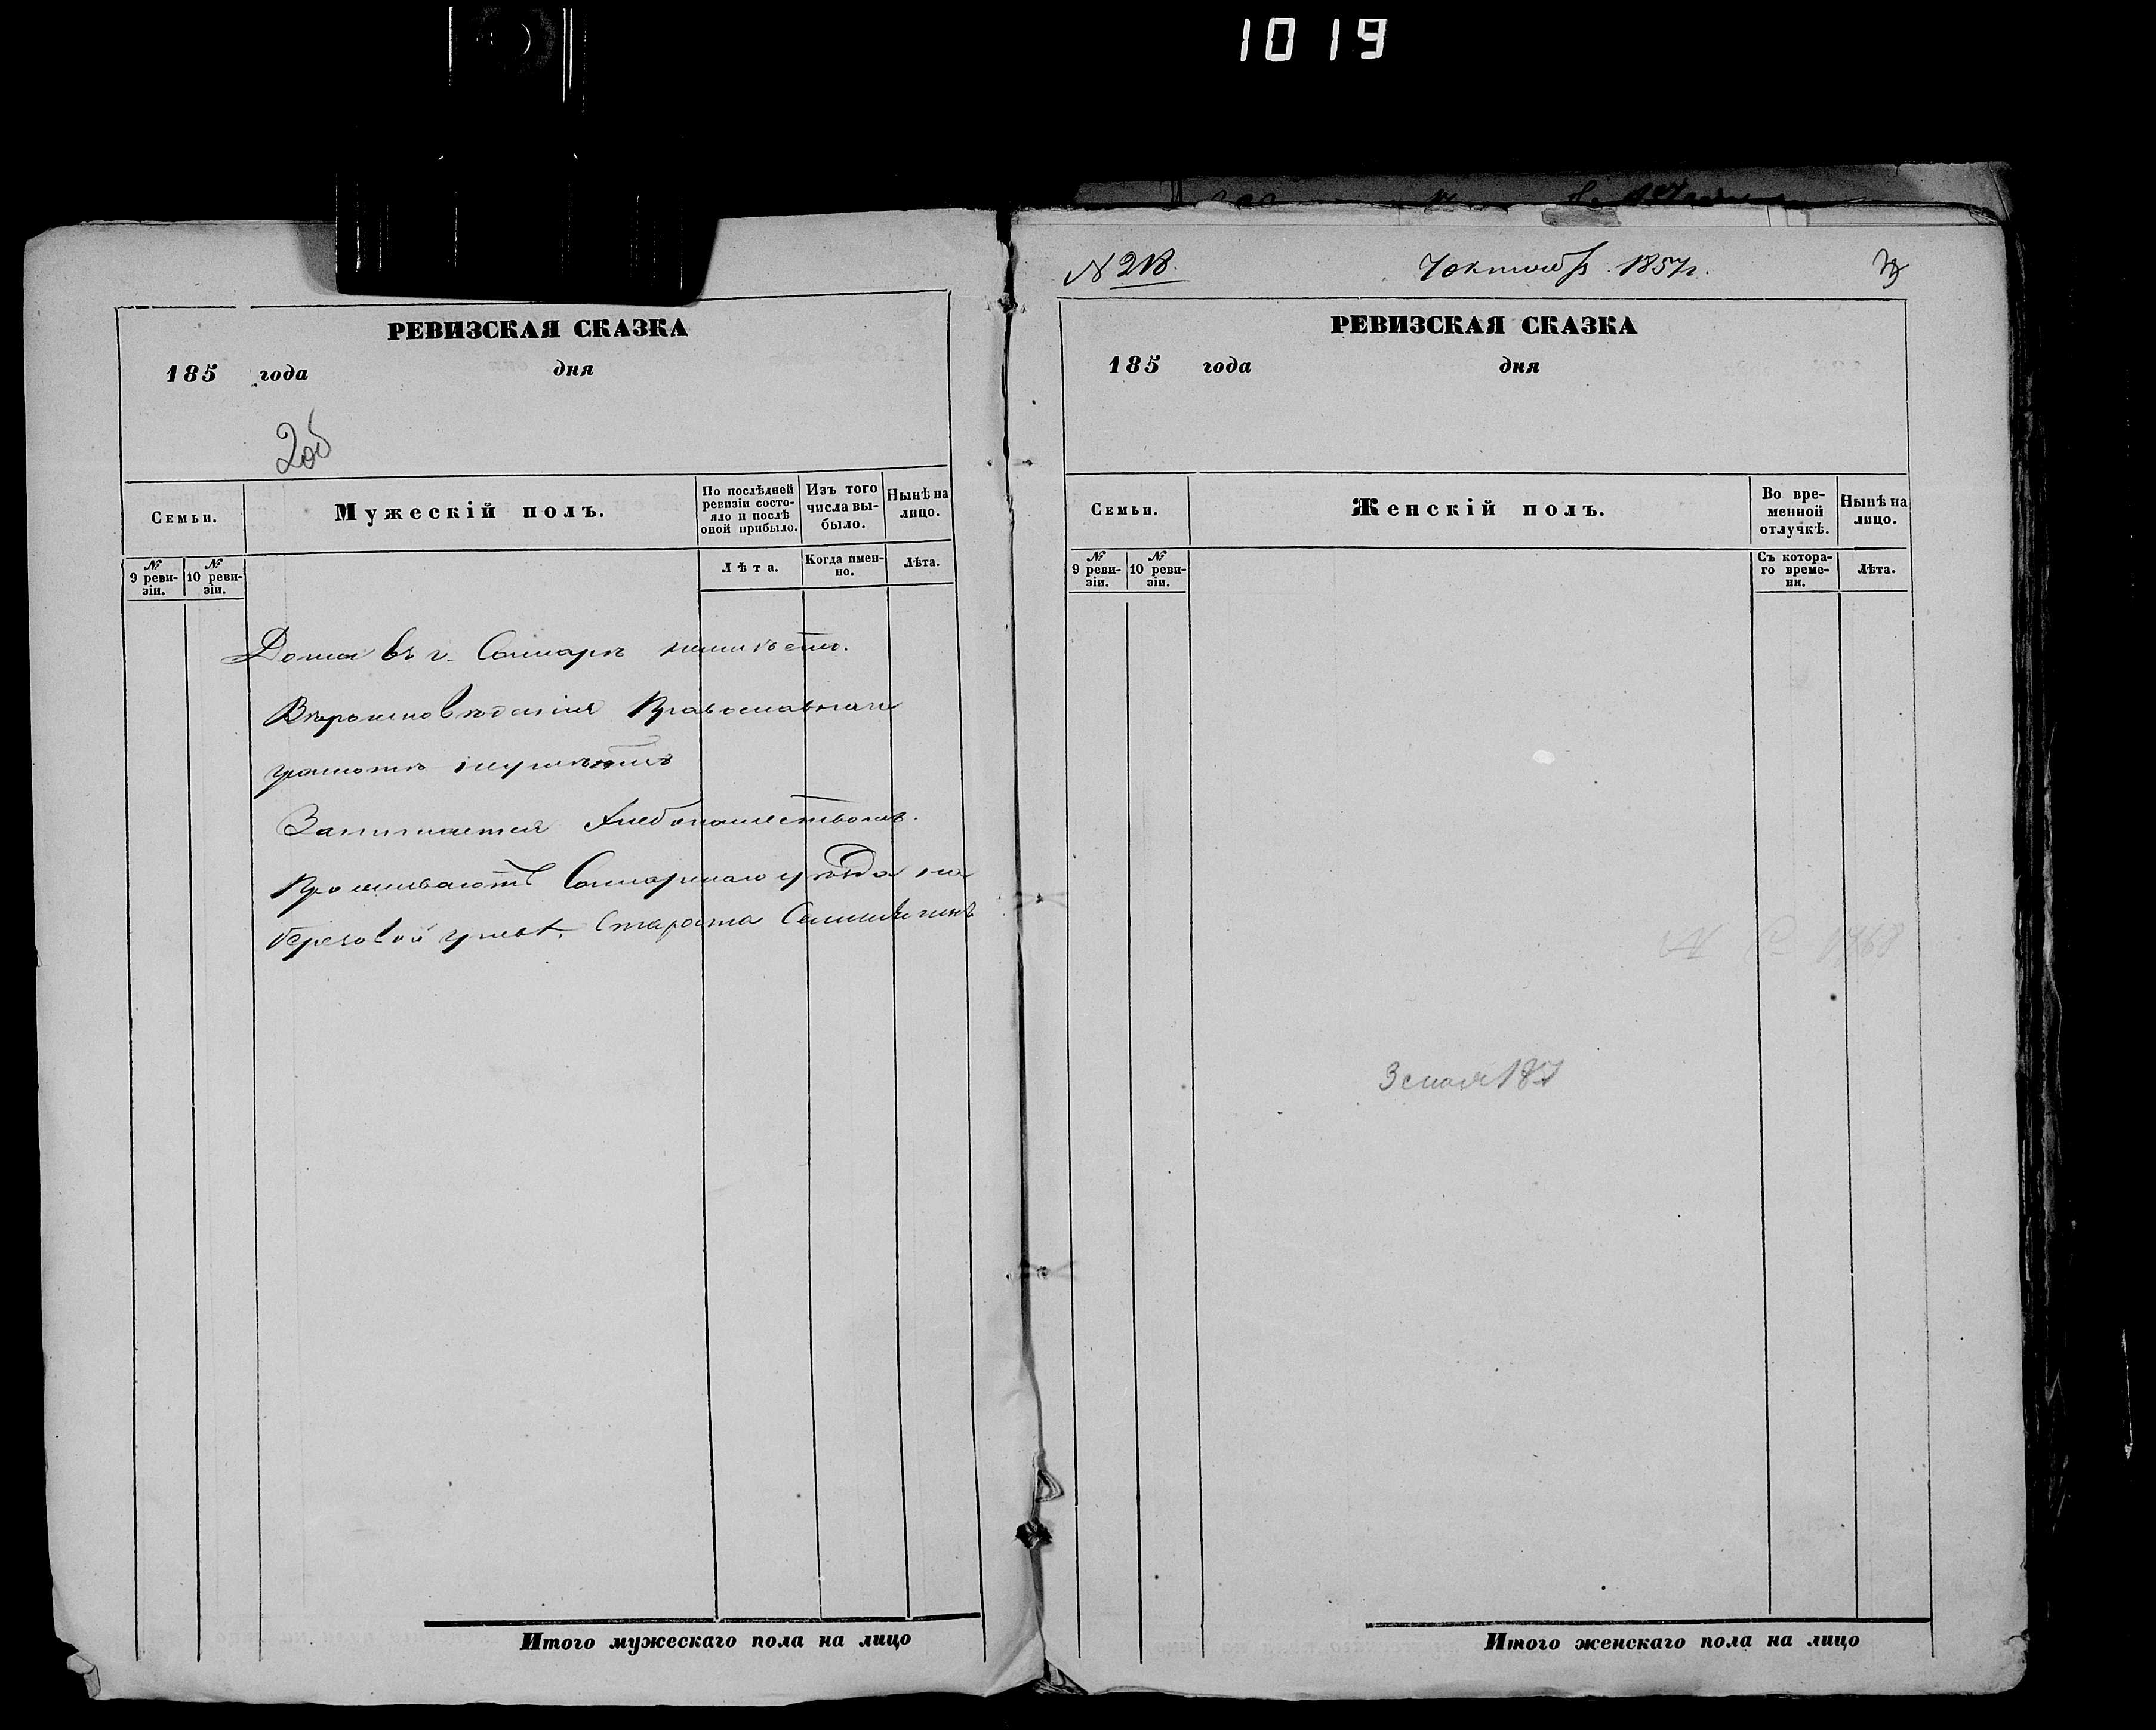 1019
РЕВИЗСКАЯ СКАЗКА
185 года дня
2об
Семьи.
Мужескій полъ.
По послѣдней ревизіи состояло и послѣ оной прибыло.
Изъ того числа выбыло.
Нынѣ на лицо.
№ 9 ревизіи.
№ 10 ревизіи.
Лѣта.
Когда имен-но.
Лѣта.
Дома въ г. Самарѣ неимѣетъ.
Вѣроисповѣданія Православнаго
грамотѣ неумѣетъ
Занимается хлебопашествомъ.
Проживаютъ Самарскаго уѣзда на
березовой Староста
Итого мужескаго пола на лицо
№ 218.
7 октяб 1857г.
3
РЕВИЗСКАЯ СКАЗКА
185 года дня
Семьи.
Женскій полъ.
Во вре-менной отлучкѣ.
Нынѣ на лицо.
№ 9 реви-зіи.
№ 10 реви-зіи.
Съ котора-го време-ни.
Лѣта.
Итого женскаго пола на лицо